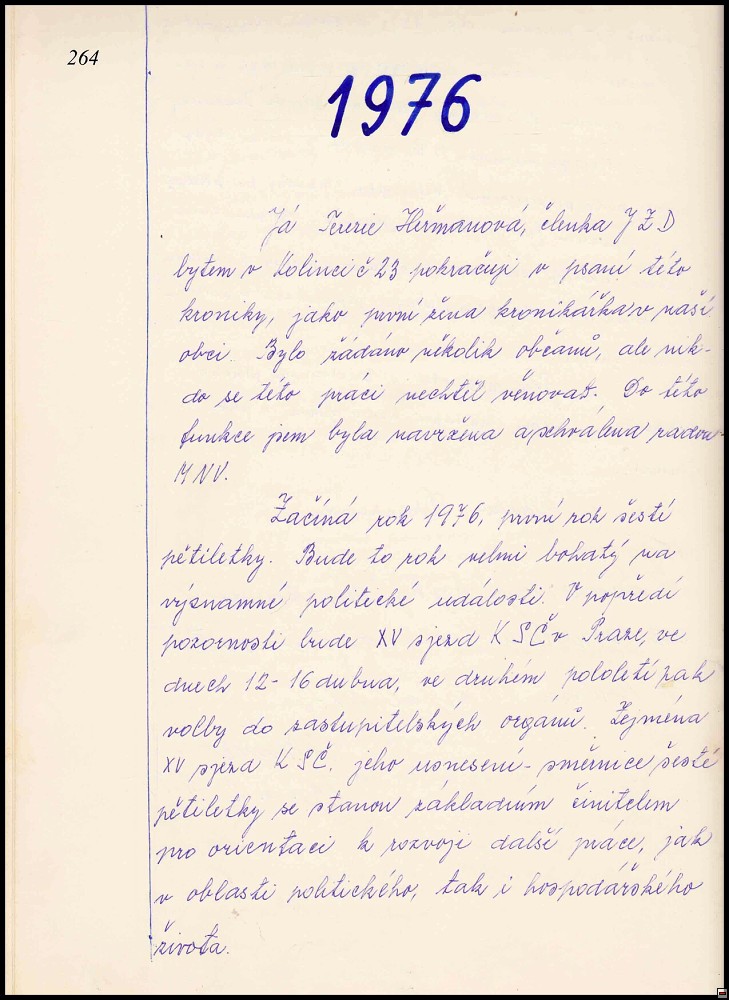 264
1976
Já Terezie Heřmanová, členka JZD
bytem v Kolinci č 23 pokračuji v psaní této
kroniky, jako první žena kronikářka v naší
obci. Bylo žádáno několik občanů, ale nik-
do se této práci nechtěl věnovat. Do této
funkce jsem byla navržena a schválena radou
MNV.
Začíná rok 1976, první rok šesté
pětiletky. Bude to rok velmi bohatý na
významné politické události. V popředí
pozornosti bude XV sjezd KSČ v Praze, ve
dnech 12-16 dubna, ve druhém pololetí pak
volby do zastupitelských orgánů. Zejména
XV sjezd KSČ. jeho usnesení - směrnice šesté
pětiletky se stanou základním činitelem
pro orientaci k rozvoji další práce, jak
v oblasti politického, tak i hospodářského
života.